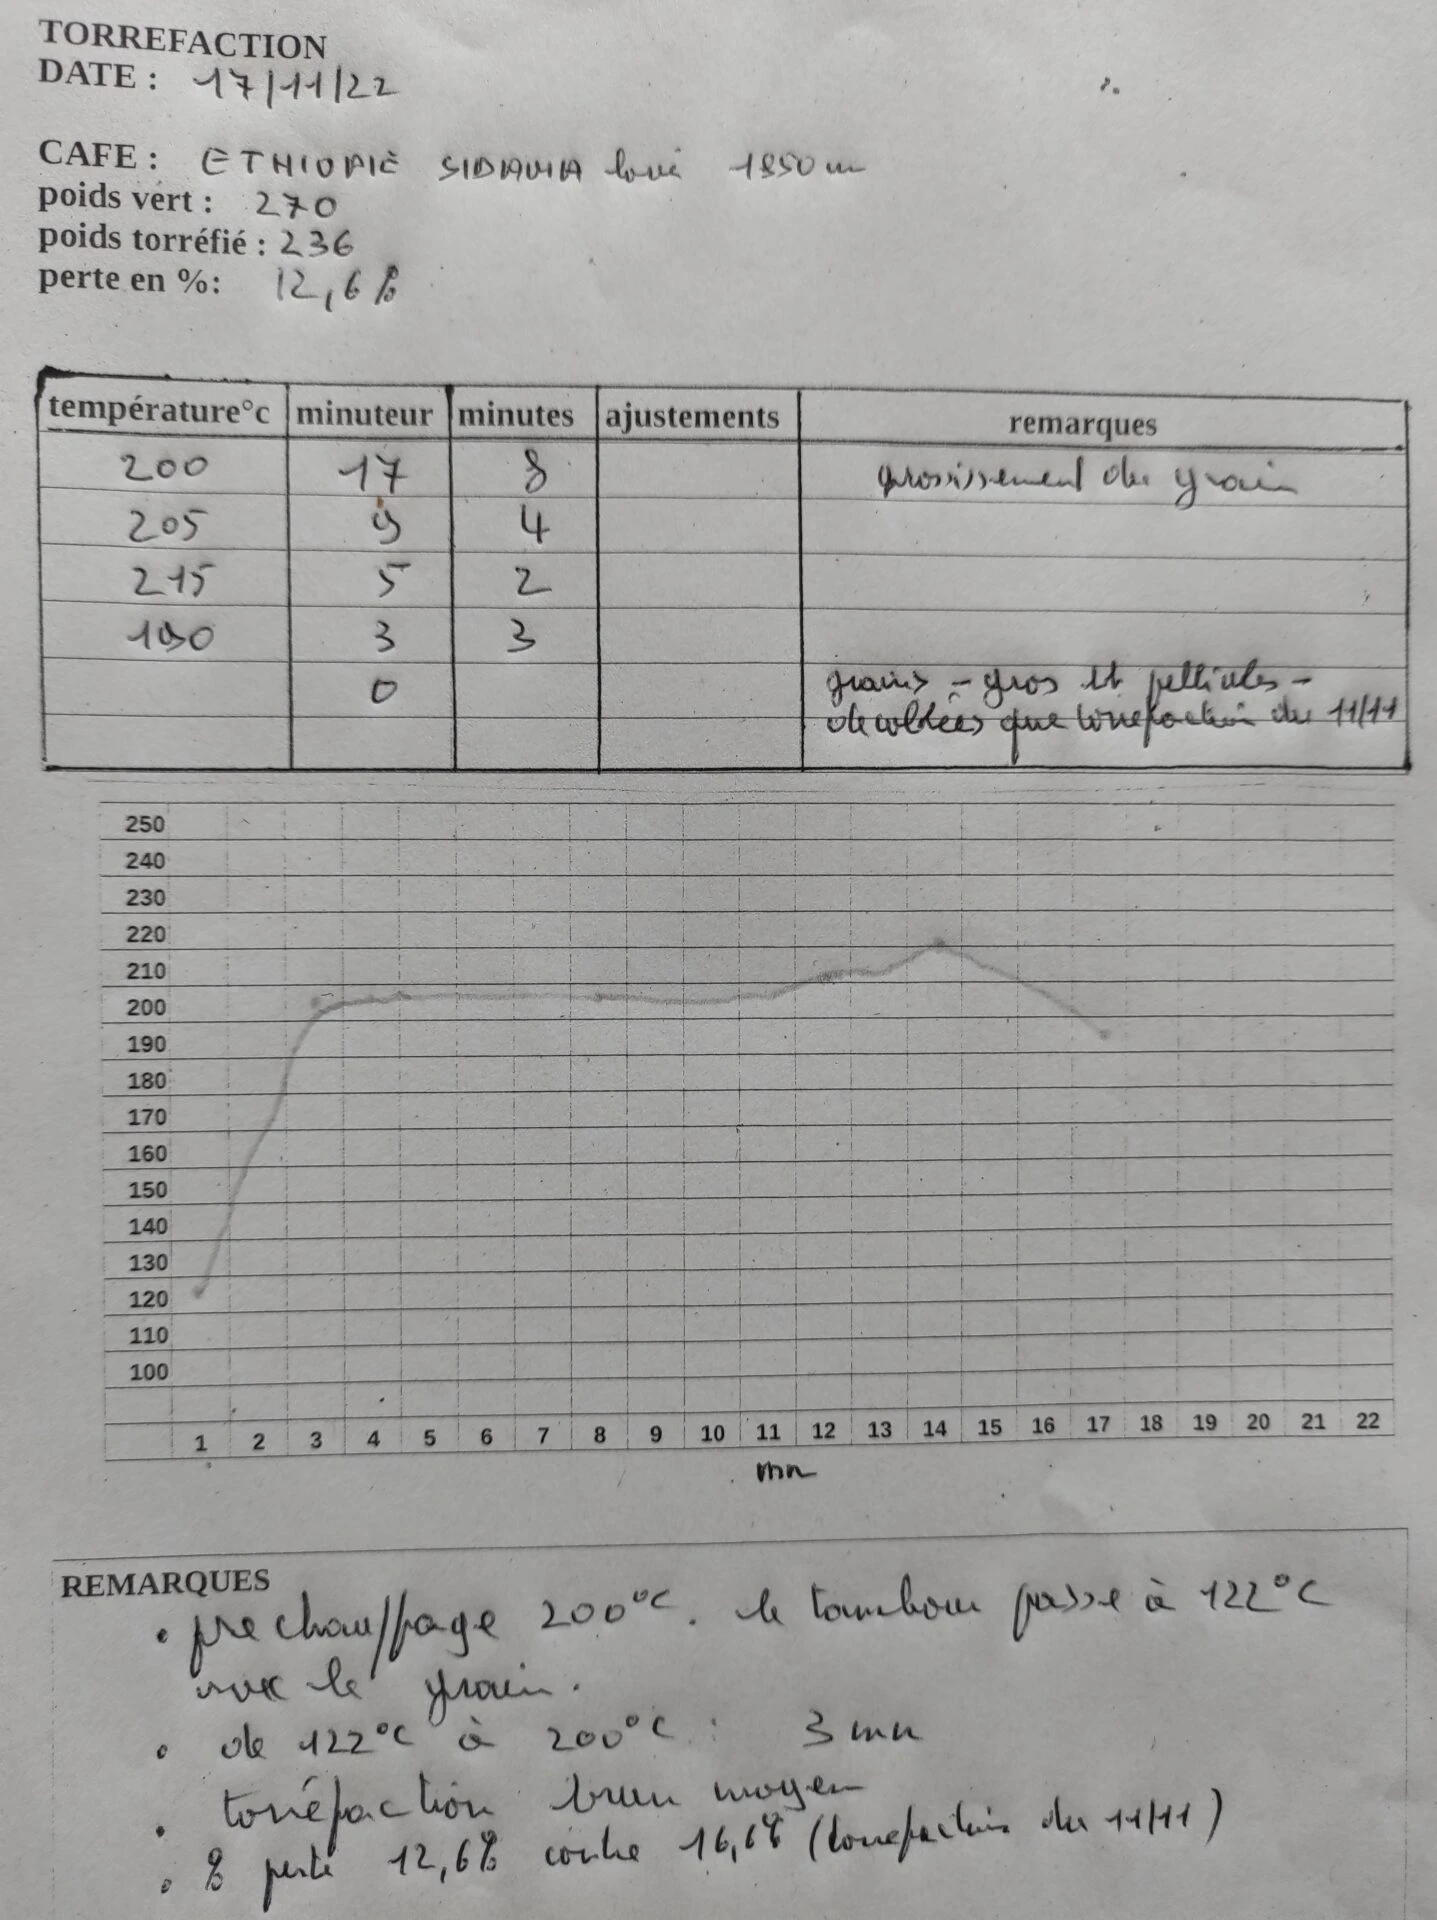 TORREFACTION
DATE : 17/11/22
CAFE : ETHIOPIE SIDAMA lavé 1850 m
poids vert : 270
poids torréfié : 236
perte en %: 12,6 %
température°c minuteur minutes ajustements remarques
200 17 8 grossissement du grain
205 9 4
215 5 2
190 3 3
0 grains - gros et pellicules -
décollées que torrefaction du 11/11
250
240
230
220
210
200
190
180
170
160
150
140
130
120
110
100
1 2 3 4 5 6 7 8 9 10 11 12 13 14 15 16 17 18 19 20 21 22
mn
REMARQUES
• prechauffage 200°C. le tambour passe à 122°C
avec le grain.
• de 122°C à 200°C : 3 mn
• torréfaction brun moyen
• % perte 12,6% contre 16,6% (torrefaction du 11/11)